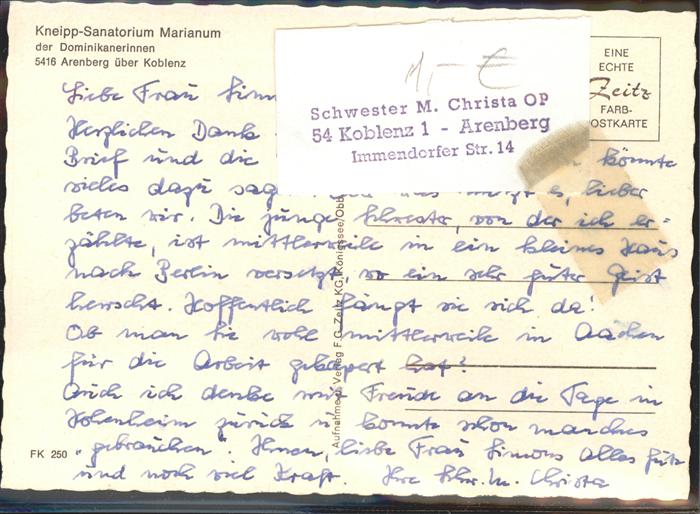 Kneipp-Sanatorium Marianum
der Dominikanerinnen
5416 Arenberg über Koblenz
EINE
ECHTE
Zeitz
FARB-
OSTKARTE
1,- €
Schwester M. Christa OP
54 Koblenz 1 - Arenberg
Immendorfer Str. 14
Liebe Frau Simo
Herzlichen Dank
Brief und die könnte
vieles dazu sag es, lieber
beten wir. Die junge Schwester, von der ich er=
zählte, ist mittlerweile in ein kleines Haus
nach Berlin versetzt, wo ein sehr guter Geist
herrscht. Hoffentlich fängt sie sich da!
Ob man Sie wohl mittlerweile in Aachen
für die Arbeit gekapert hat?
Auch ich denke mit Freude an die Tage in
Hohenheim zurück u. konnte schon manches
"gebrauchen". Ihnen, liebe Frau Simons alles Gute
und noch viel Kraft. Ihre Schw. M. Christa
FK 250
Aufnahme u. Verlag F. G. Zeitz KG, Königssee/Obb